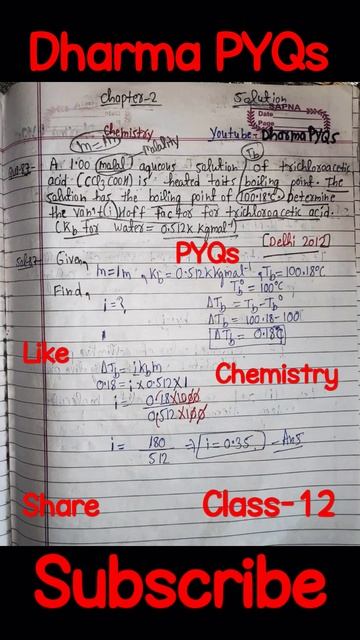 Dharma PYQs
Chapter-2 Solution
SAPNA
Date
Page
Chemistry Youtube- Dharma PYQs
m=M molality Tb
Que-87- A 1.00 molal aqueous solution of trichloroacetic
acid (CCl3COOH) is heated to its boiling point. The
solution has the boiling point of 100.18°C. Determine
the van't(i) Hoff factor for trichloroacetic acid.
(Kb for water = 0.512K kgmol⁻¹)
PYQs [Delhi 2012]
Sol-87- Given,
m=1m, Kb = 0.512K kgmol⁻¹, Tb = 100.18°C
Tb° = 100°C
Find,
i=?,
ΔTb = Tb - Tb°
ΔTb = 100.18 - 100
ΔTb = 0.18°C
Like
Chemistry
ΔTb = i Kb m
0.18 = i × 0.512 × 1
i = 0.18×1000
0.512×1000
i = 180 ⇒ i = 0.35 - Ans
512
Share Class-12
Subscribe